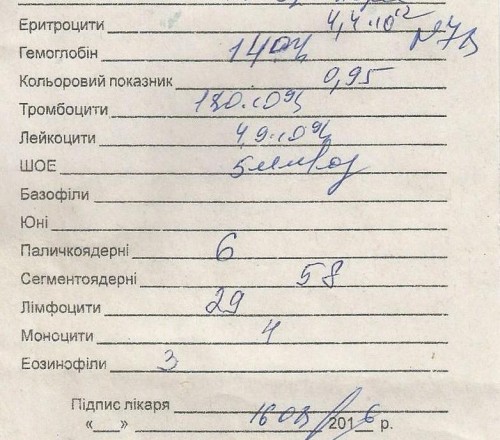 Еритроцити 4,4·10¹²
Гемоглобін 140 г/л
Кольоровий показник 0,95
Тромбоцити 180·10⁹/л
Лейкоцити 4,9·10⁹/л
ШОЕ 5 мм/год
Базофіли
Юні
Паличкоядерні 6
Сегментоядерні 58
Лімфоцити 29
Моноцити 4
Еозинофіли 3
Підпис лікаря
«___» 16 03 2016 р.